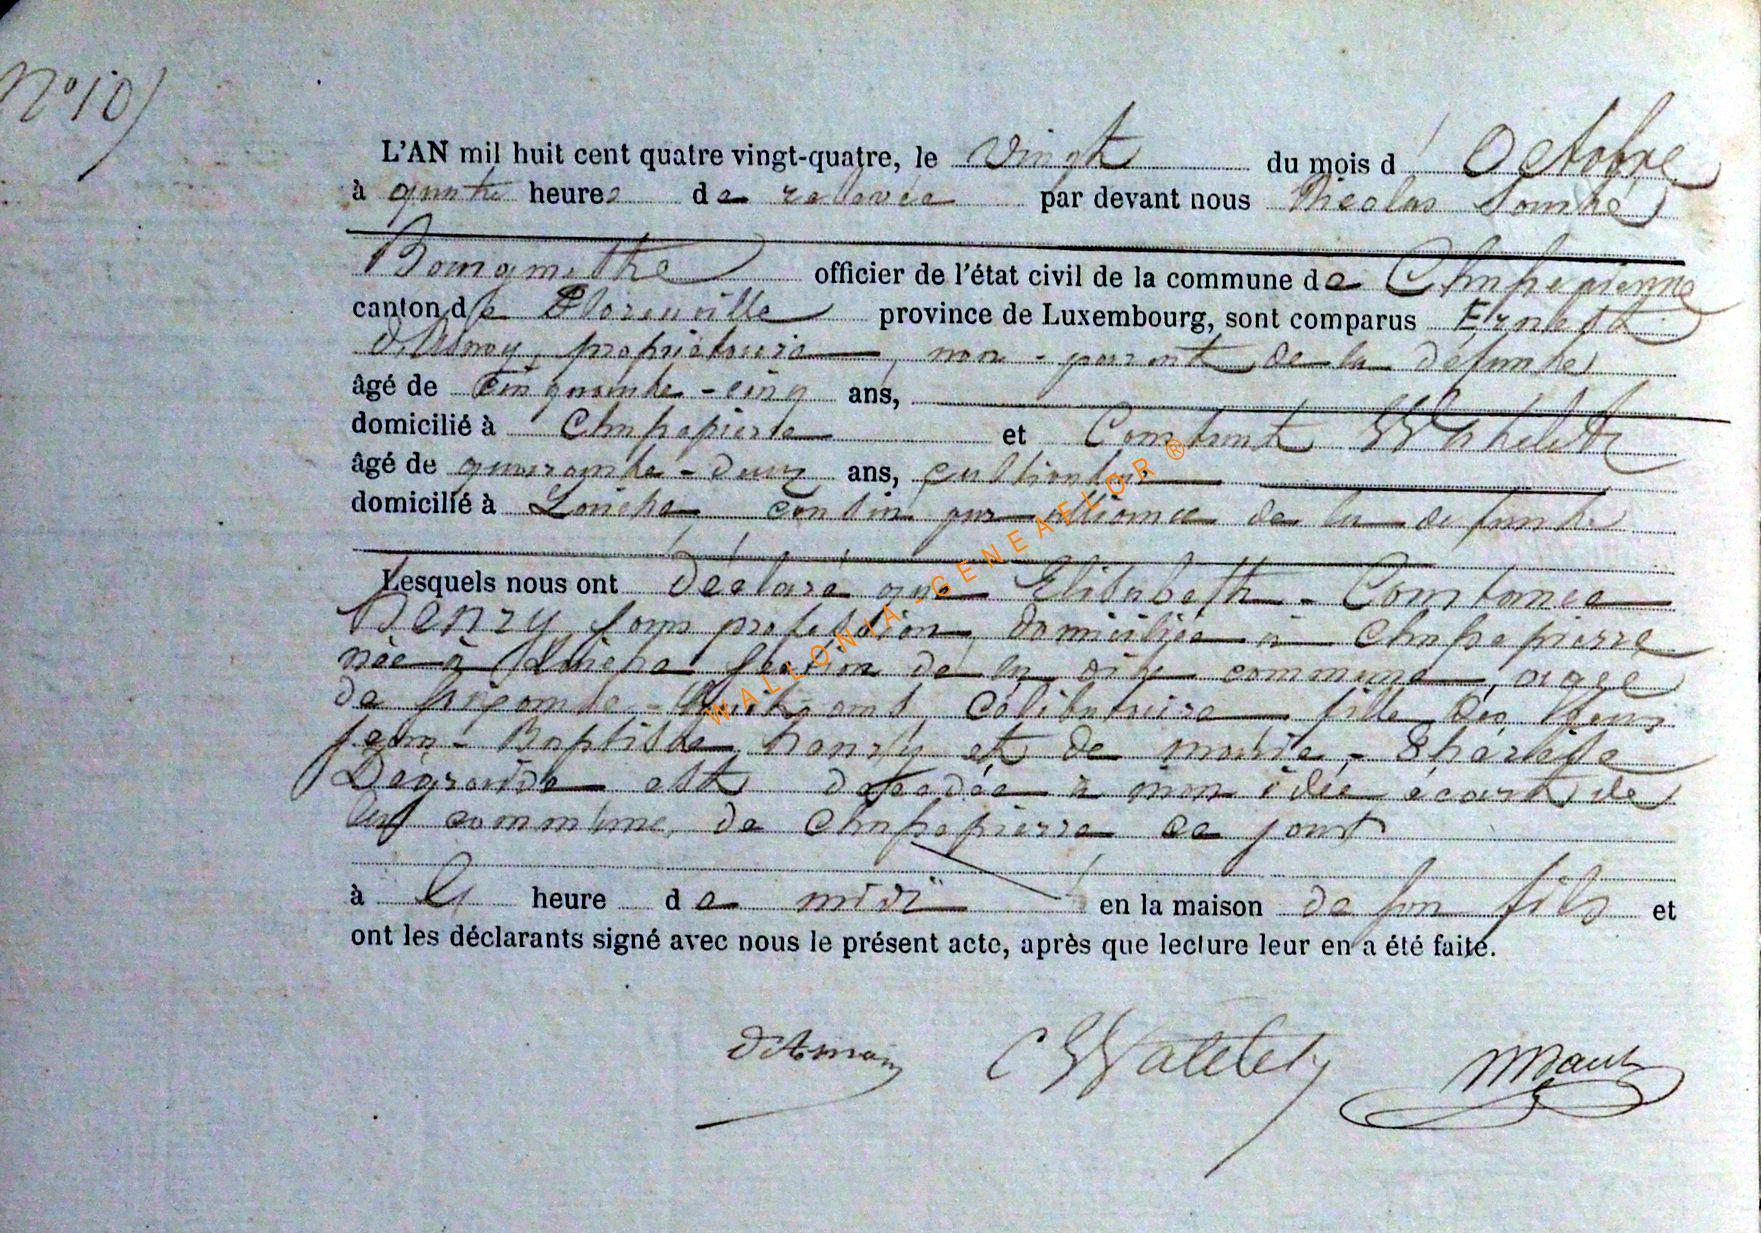 N° 10
L'AN mil huit cent quatre vingt-quatre, le vingt du mois d'Octobre
à quatre heures de relevée par devant nous Nicolas
Bourgmestre officier de l'état civil de la commune de Chassepierre
canton de Florenville province de Luxembourg, sont comparus Ernest
propriétaire, non-parent de la défunte
âgé de cinquante-cinq ans,
domicilié à Chassepierre et Constant Watelet
âgé de quarante-deux ans, cultivateur
domicilié à Laiche, cousin par alliance de la défunte
Lesquels nous ont déclaré que Elisabeth-Constance
Henry sans profession, domiciliée à Chassepierre
née à Laiche section de la dite commune, âgée
de soixante-huit ans, célibataire fille des feus
Jean-Baptiste Henry et de Marie-Thérèse
est décédée à mon idée écart de
la commune de Chassepierre ce jour
à heure de midi en la maison de son fils et
ont les déclarants signé avec nous le présent acte, après que lecture leur en a été faite.
C Watelet
WALLONIA-GENEAFLOR ®